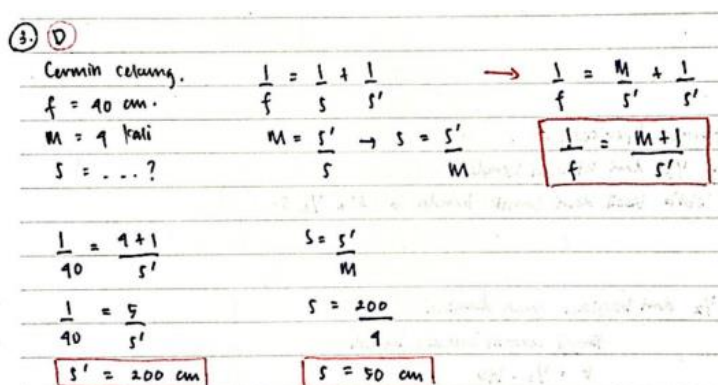 3. D
Cermin cekung.
f = 40 cm.
M = 4 kali
s = ...?
1/f = 1/s + 1/s'
M = s'/s → s = s'/M
→ 1/f = M/s' + 1/s'
1/f = M+1/s'
1/40 = 4+1/s'
1/40 = 5/s'
s' = 200 cm
s = s'/M
s = 200/4
s = 50 cm